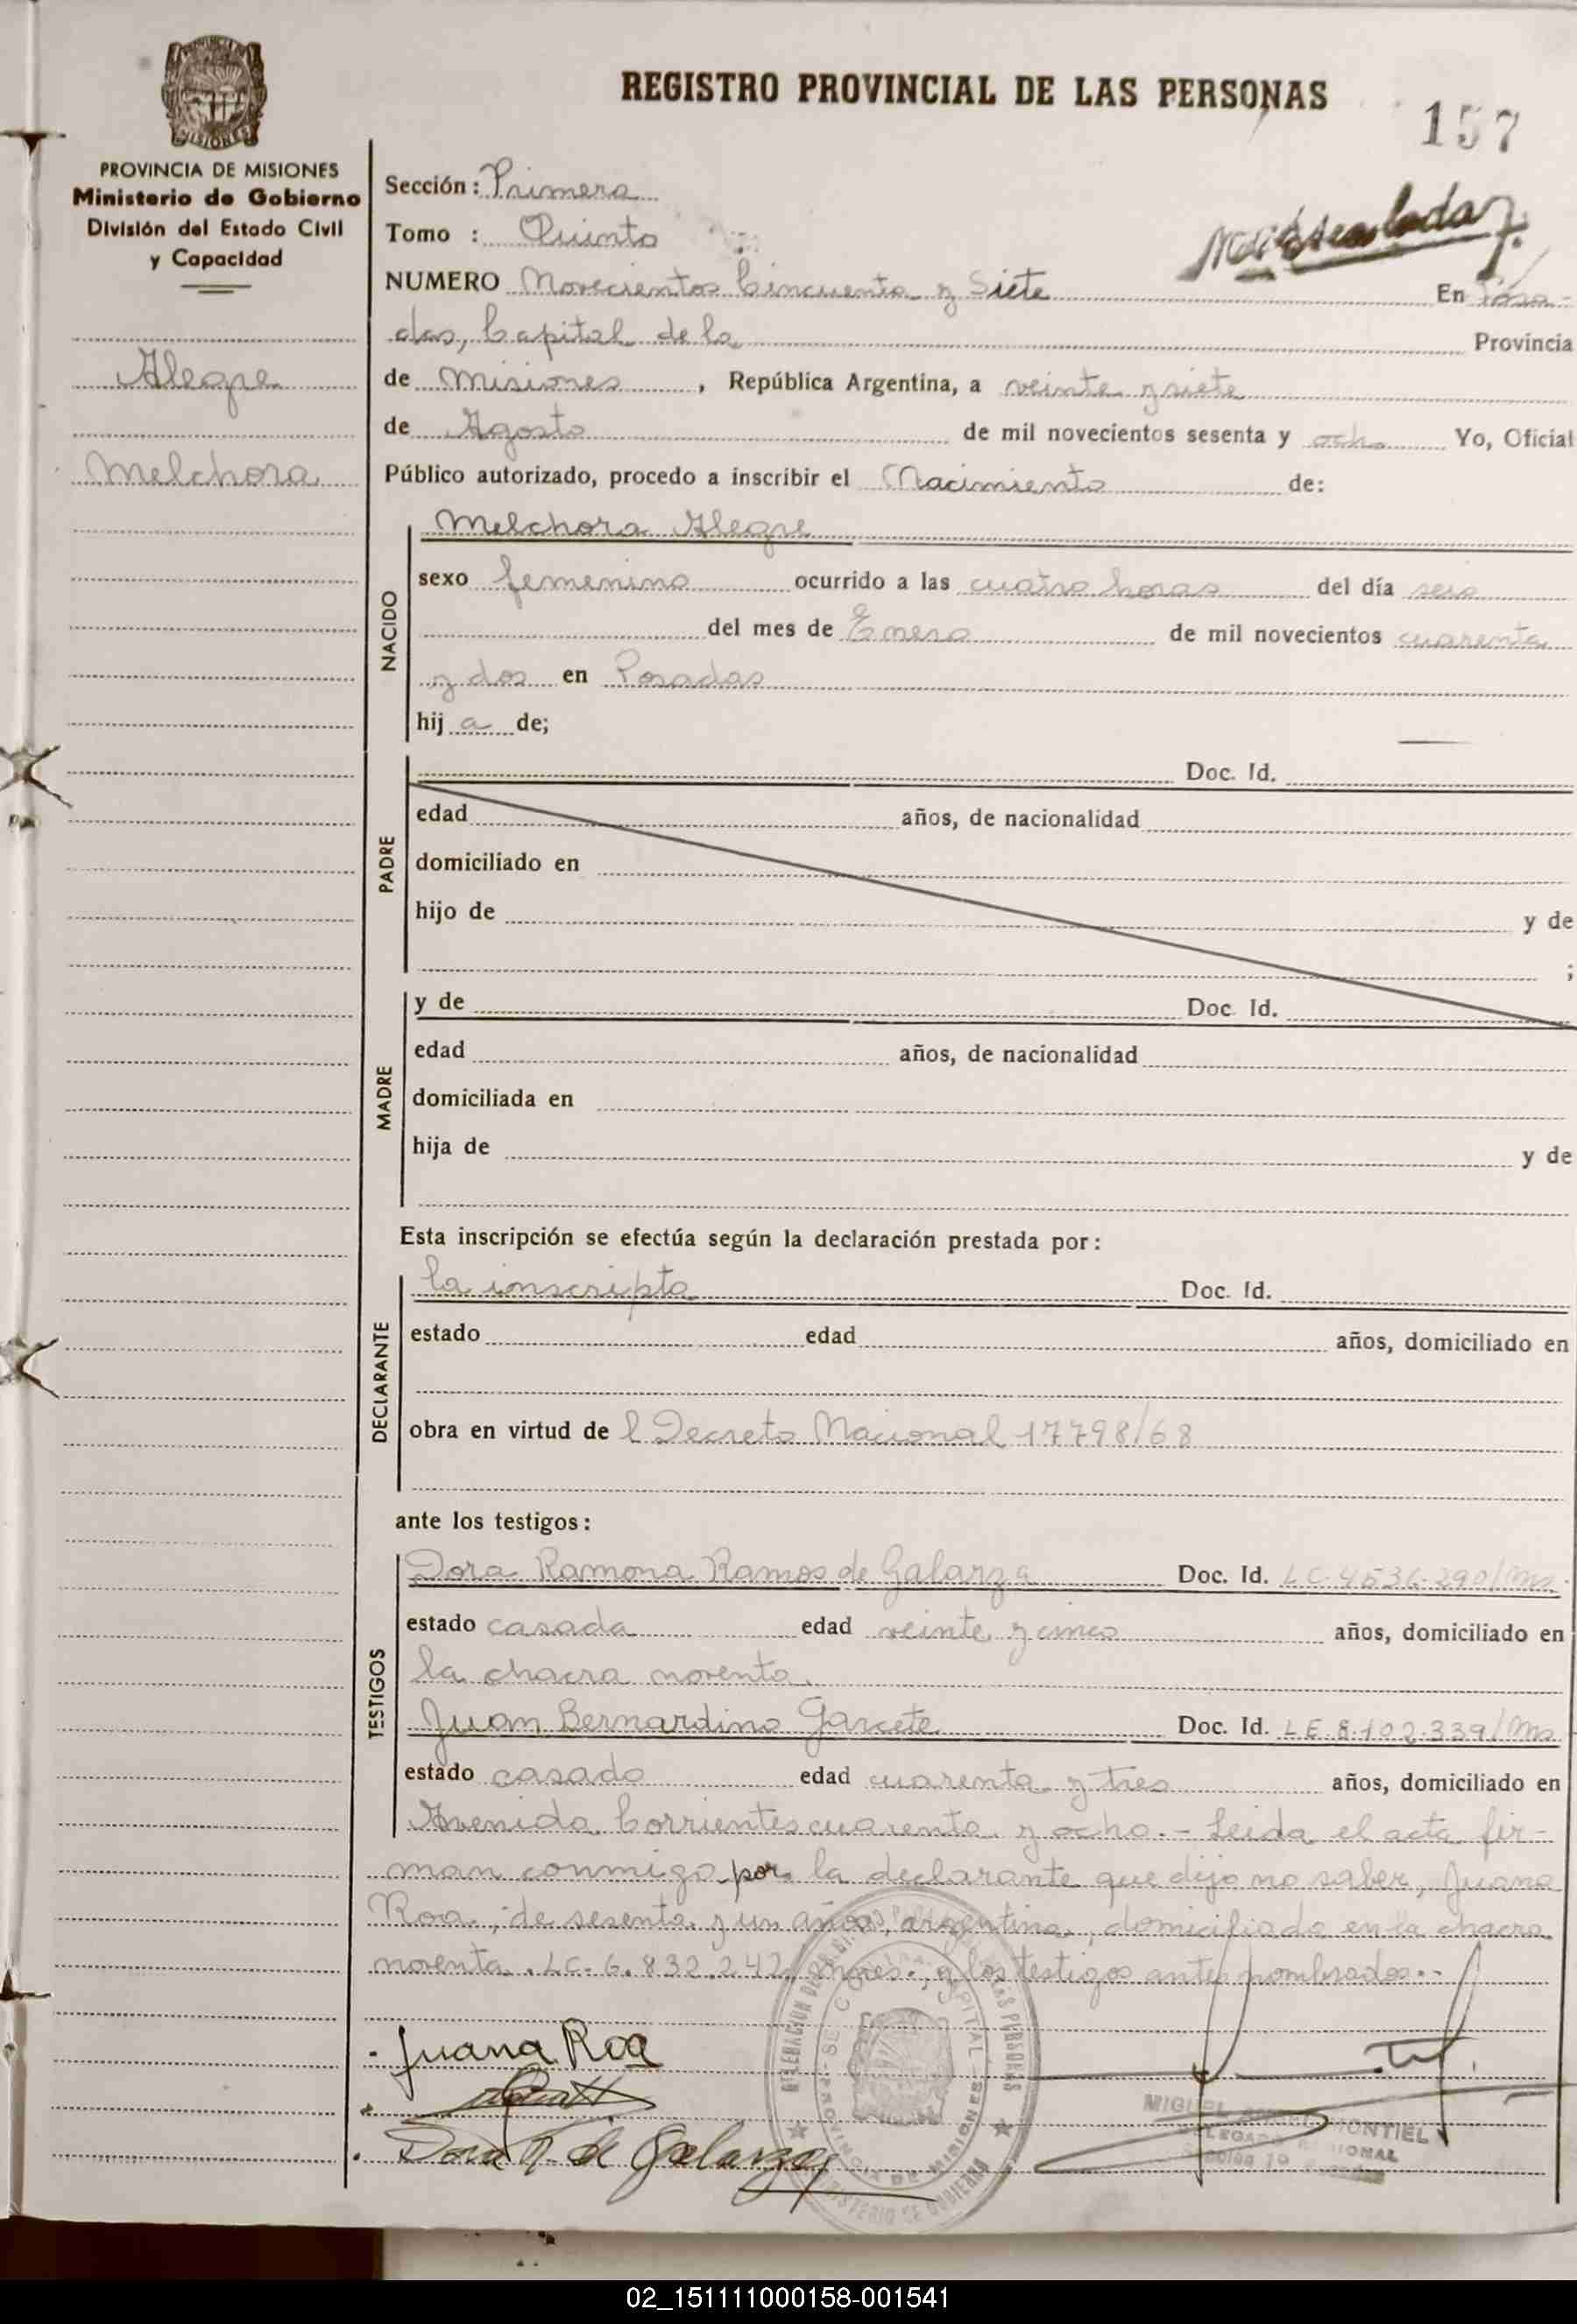 REGISTRO PROVINCIAL DE LAS PERSONAS
157
PROVINCIA DE MISIONES
Ministerio de Gobierno
División del Estado Civil
y Capacidad
Alegre
Melchora
Sección: Primera
Tomo : Quinto
NUMERO Novecientos Cincuenta y Siete En Posa-
das, Capital de la Provincia
de Misiones, República Argentina, a veinte y siete
de Agosto de mil novecientos sesenta y ocho Yo, Oficial
Público autorizado, procedo a inscribir el Nacimiento de:
NACIDO
Melchora Alegre
sexo femenino ocurrido a las cuatro horas del día seis
del mes de Enero de mil novecientos cuarenta
y dos en Posadas
hij a de;
PADRE
Doc. Id.
edad años, de nacionalidad
domiciliado en
hijo de y de
;
MADRE
y de Doc. Id.
edad años, de nacionalidad
domiciliada en
hija de y de
Esta inscripción se efectúa según la declaración prestada por:
DECLARANTE
la inscripta Doc. Id.
estado edad años, domiciliado en
obra en virtud de l Decreto Nacional 17798/68
ante los testigos:
TESTIGOS
Dora Ramona Ramos de Galarza Doc. Id. LC.4536.290/Ms.
estado casada edad veinte y cinco años, domiciliado en
la chacra noventa.
Juan Bernardino Garcete Doc. Id. LE.8.102.339/Ms
estado casado edad cuarenta y tres años, domiciliado en
Avenida Corrientes cuarenta y ocho.- Leida el acta fir-
man conmigo por la declarante que dijo no saber, Juana
Roa, de sesenta y un años, argentina, domiciliada en la chacra
noventa. LC. 6.832.242, y los testigos antes nombrados.-
Juana Roa
Dora R. de Galarza
PROVINCIA DE MISIONES
MIGUEL MONTIEL
02_151111000158-001541